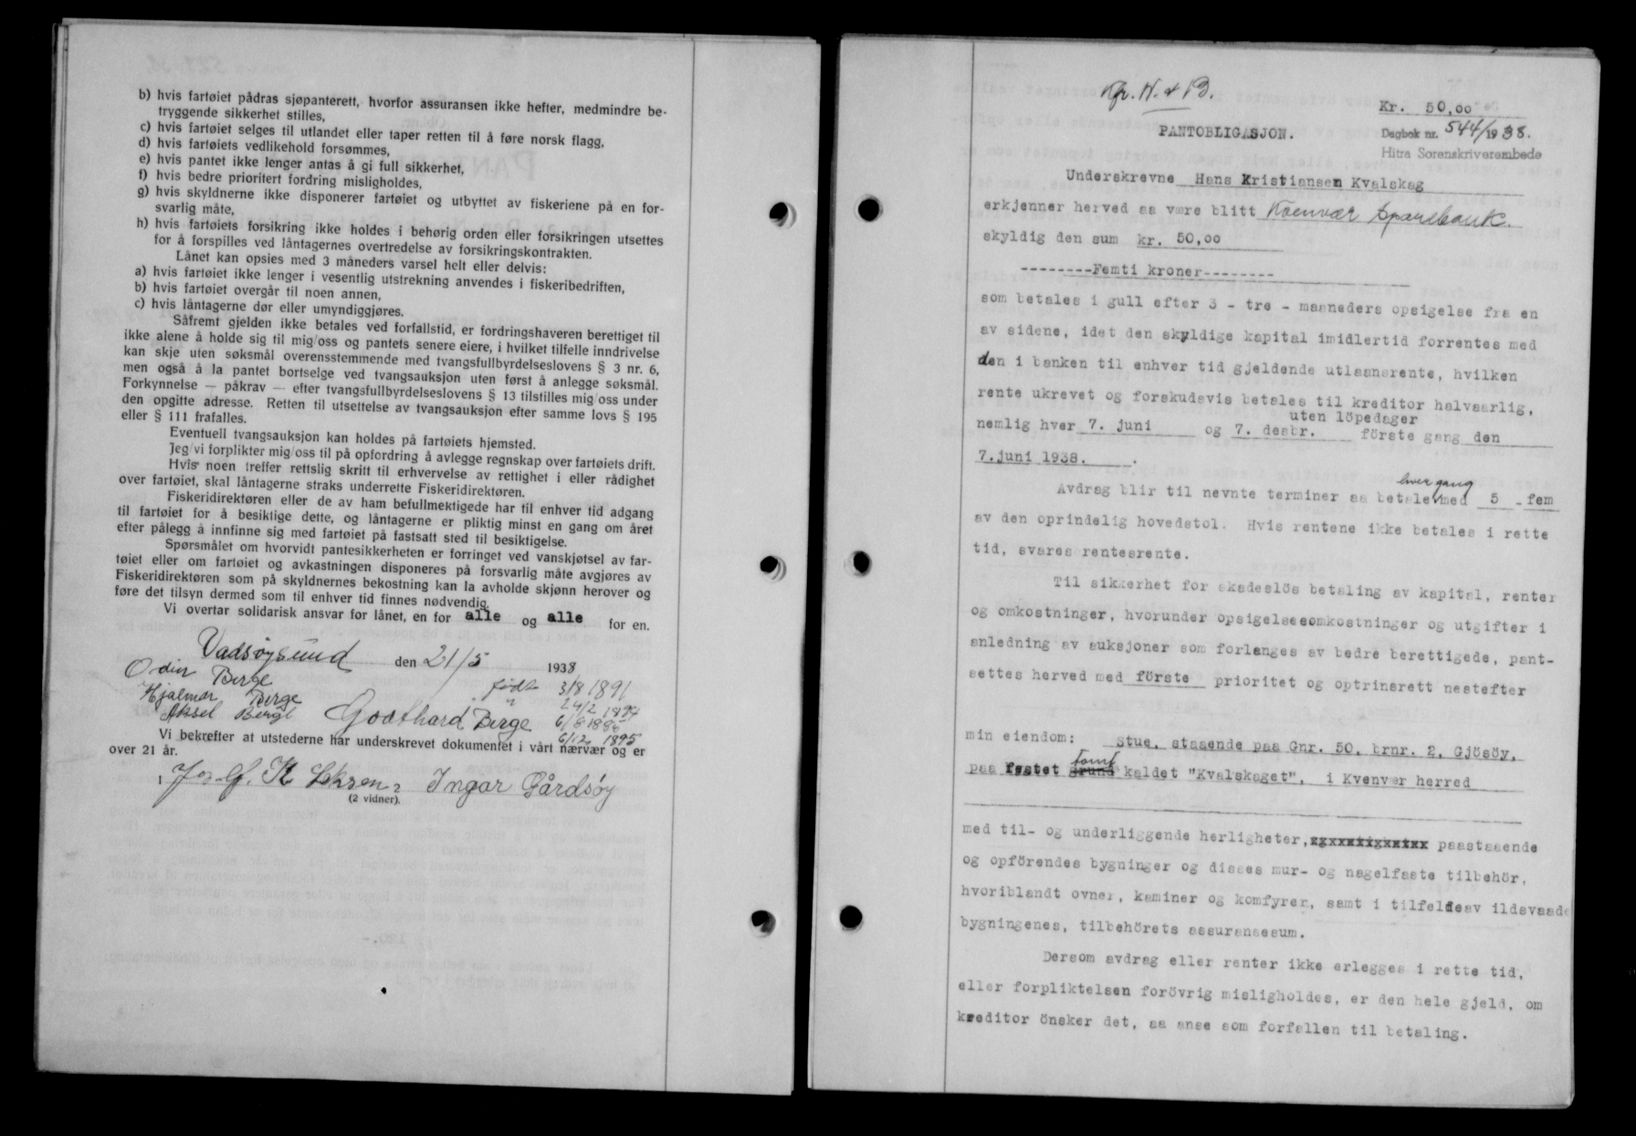 b) hvis fartøiet pådras sjøpanterett, hvorfor assuransen ikke hefter, medmindre be-
tryggende sikkerhet stilles,
c) hvis fartøiet selges til utlandet eller taper retten til å føre norsk flagg,
d) hvis fartøiets vedlikehold forsømmes,
e) hvis pantet ikke lenger antas å gi full sikkerhet,
f) hvis bedre prioritert fordring misligholdes,
g) hvis skyldnerne ikke disponerer fartøiet og utbyttet av fiskeriene på en for-
svarlig måte,
h) hvis fartøiets forsikring ikke holdes i behørig orden eller forsikringen utsettes
for å forspilles ved låntagernes overtredelse av forsikringskontrakten.
Lånet kan opsies med 3 måneders varsel helt eller delvis:
a) hvis fartøiet ikke lenger i vesentlig utstrekning anvendes i fiskeribedriften,
b) hvis fartøiet overgår til noen annen,
c) hvis låntagerne dør eller umyndiggjøres.
Såfremt gjelden ikke betales ved forfallstid, er fordringshaveren berettiget til
ikke alene å holde sig til mig/oss og pantets senere eiere, i hvilket tilfelle inndrivelse
kan skje uten søksmål overensstemmende med tvangsfullbyrdelseslovens § 3 nr. 6,
men også å la pantet bortselge ved tvangsauksjon uten først å anlegge søksmål.
Forkynnelse — påkrav — efter tvangsfullbyrdelseslovens § 13 tilstilles mig/oss under
den opgitte adresse. Retten til utsettelse av tvangsauksjon efter samme lovs § 195
eller § 111 frafalles.
Eventuell tvangsauksjon kan holdes på fartøiets hjemsted.
Jeg/vi forplikter mig/oss til på opfordring å avlegge regnskap over fartøiets drift.
Hvis noen treffer rettslig skritt til erhvervelse av rettighet i eller rådighet
over fartøiet, skal låntagerne straks underrette Fiskeridirektøren.
Fiskeridirektøren eller de av ham befullmektigede har til enhver tid adgang
til fartøiet for å besiktige dette, og låntagerne er pliktig minst en gang om året
efter pålegg å innfinne sig med fartøiet på fastsatt sted til besiktigelse.
Spørsmålet om hvorvidt pantesikkerheten er forringet ved vanskjøtsel av far-
tøiet eller om fartøiet og avkastningen disponeres på forsvarlig måte avgjøres av
Fiskeridirektøren som på skyldnernes bekostning kan la avholde skjønn herover og
føre det tilsyn dermed som til enhver tid finnes nødvendig.
Vi overtar solidarisk ansvar for lånet, en for alle og alle for en.
Vadsøysund den 21/5 1938
Odin Berge født 3/8 1891
Hjalmar Berge " 24/2 1894
Aksel Berge Godthard Berge 6/8 188
6/12 1895
Vi bekrefter at utstederne har underskrevet dokumentet i vårt nærvær og er
over 21 år.
Ingar Gårdsøy
(2 vidner).
Kr. 50,00
PANTOBLIGASJON.
Dagbok nr. 544/1938.
Hitra Sorenskriverembede
Underskrevne Hans Kristiansen Kvalskag
erkjenner herved aa være blitt Kvenvær Sparebank.
skyldig den sum kr. 50,00
--------Femti kroner--------
som betales i gull efter 3 - tre - maaneders opsigelse fra en
av sidene, idet den skyldige kapital imidlertid forrentes med
den i banken til enhver tid gjeldende utlaansrente, hvilken
rente ukrevet og forskudsvis betales til kreditor halvaarlig,
uten löpedager
nemlig hver 7. juni og 7. desbr. förste gang den
7.juni 1938.
hver gang
Avdrag blir til nevnte terminer aa betale med 5 - fem
av den oprindelig hovedstol. Hvis rentene ikke betales i rette
tid, svares rentesrente.
Til sikkerhet for skadeslös betaling av kapital, renter
og omkostninger, hvorunder opsigelsesomkostninger og utgifter i
anledning av auksjoner som forlanges av bedre berettigede, pant-
settes herved med förste prioritet og optrinsrett nestefter
min eiendom: Stue, staaende paa Gnr. 50, brnr. 2, Gjösöy,
tomt
paa festet grund kaldet "Kvalskaget", i Kvenvær herred
med til- og underliggende herligheter, paastaaende
og opförendes bygninger og disses mur- og nagelfaste tilbehör,
hvoriblandt ovner, kaminer og komfyrer, samt i tilfeldeav ildsvaade
bygningenes, tilbehörets assuransesum.
Dersom avdrag eller renter ikke erlegges i rette tid,
eller forpliktelsen forövrig misligholdes, er den hele gjeld, om
kreditor önsker det, aa anse som forfallen til betaling.